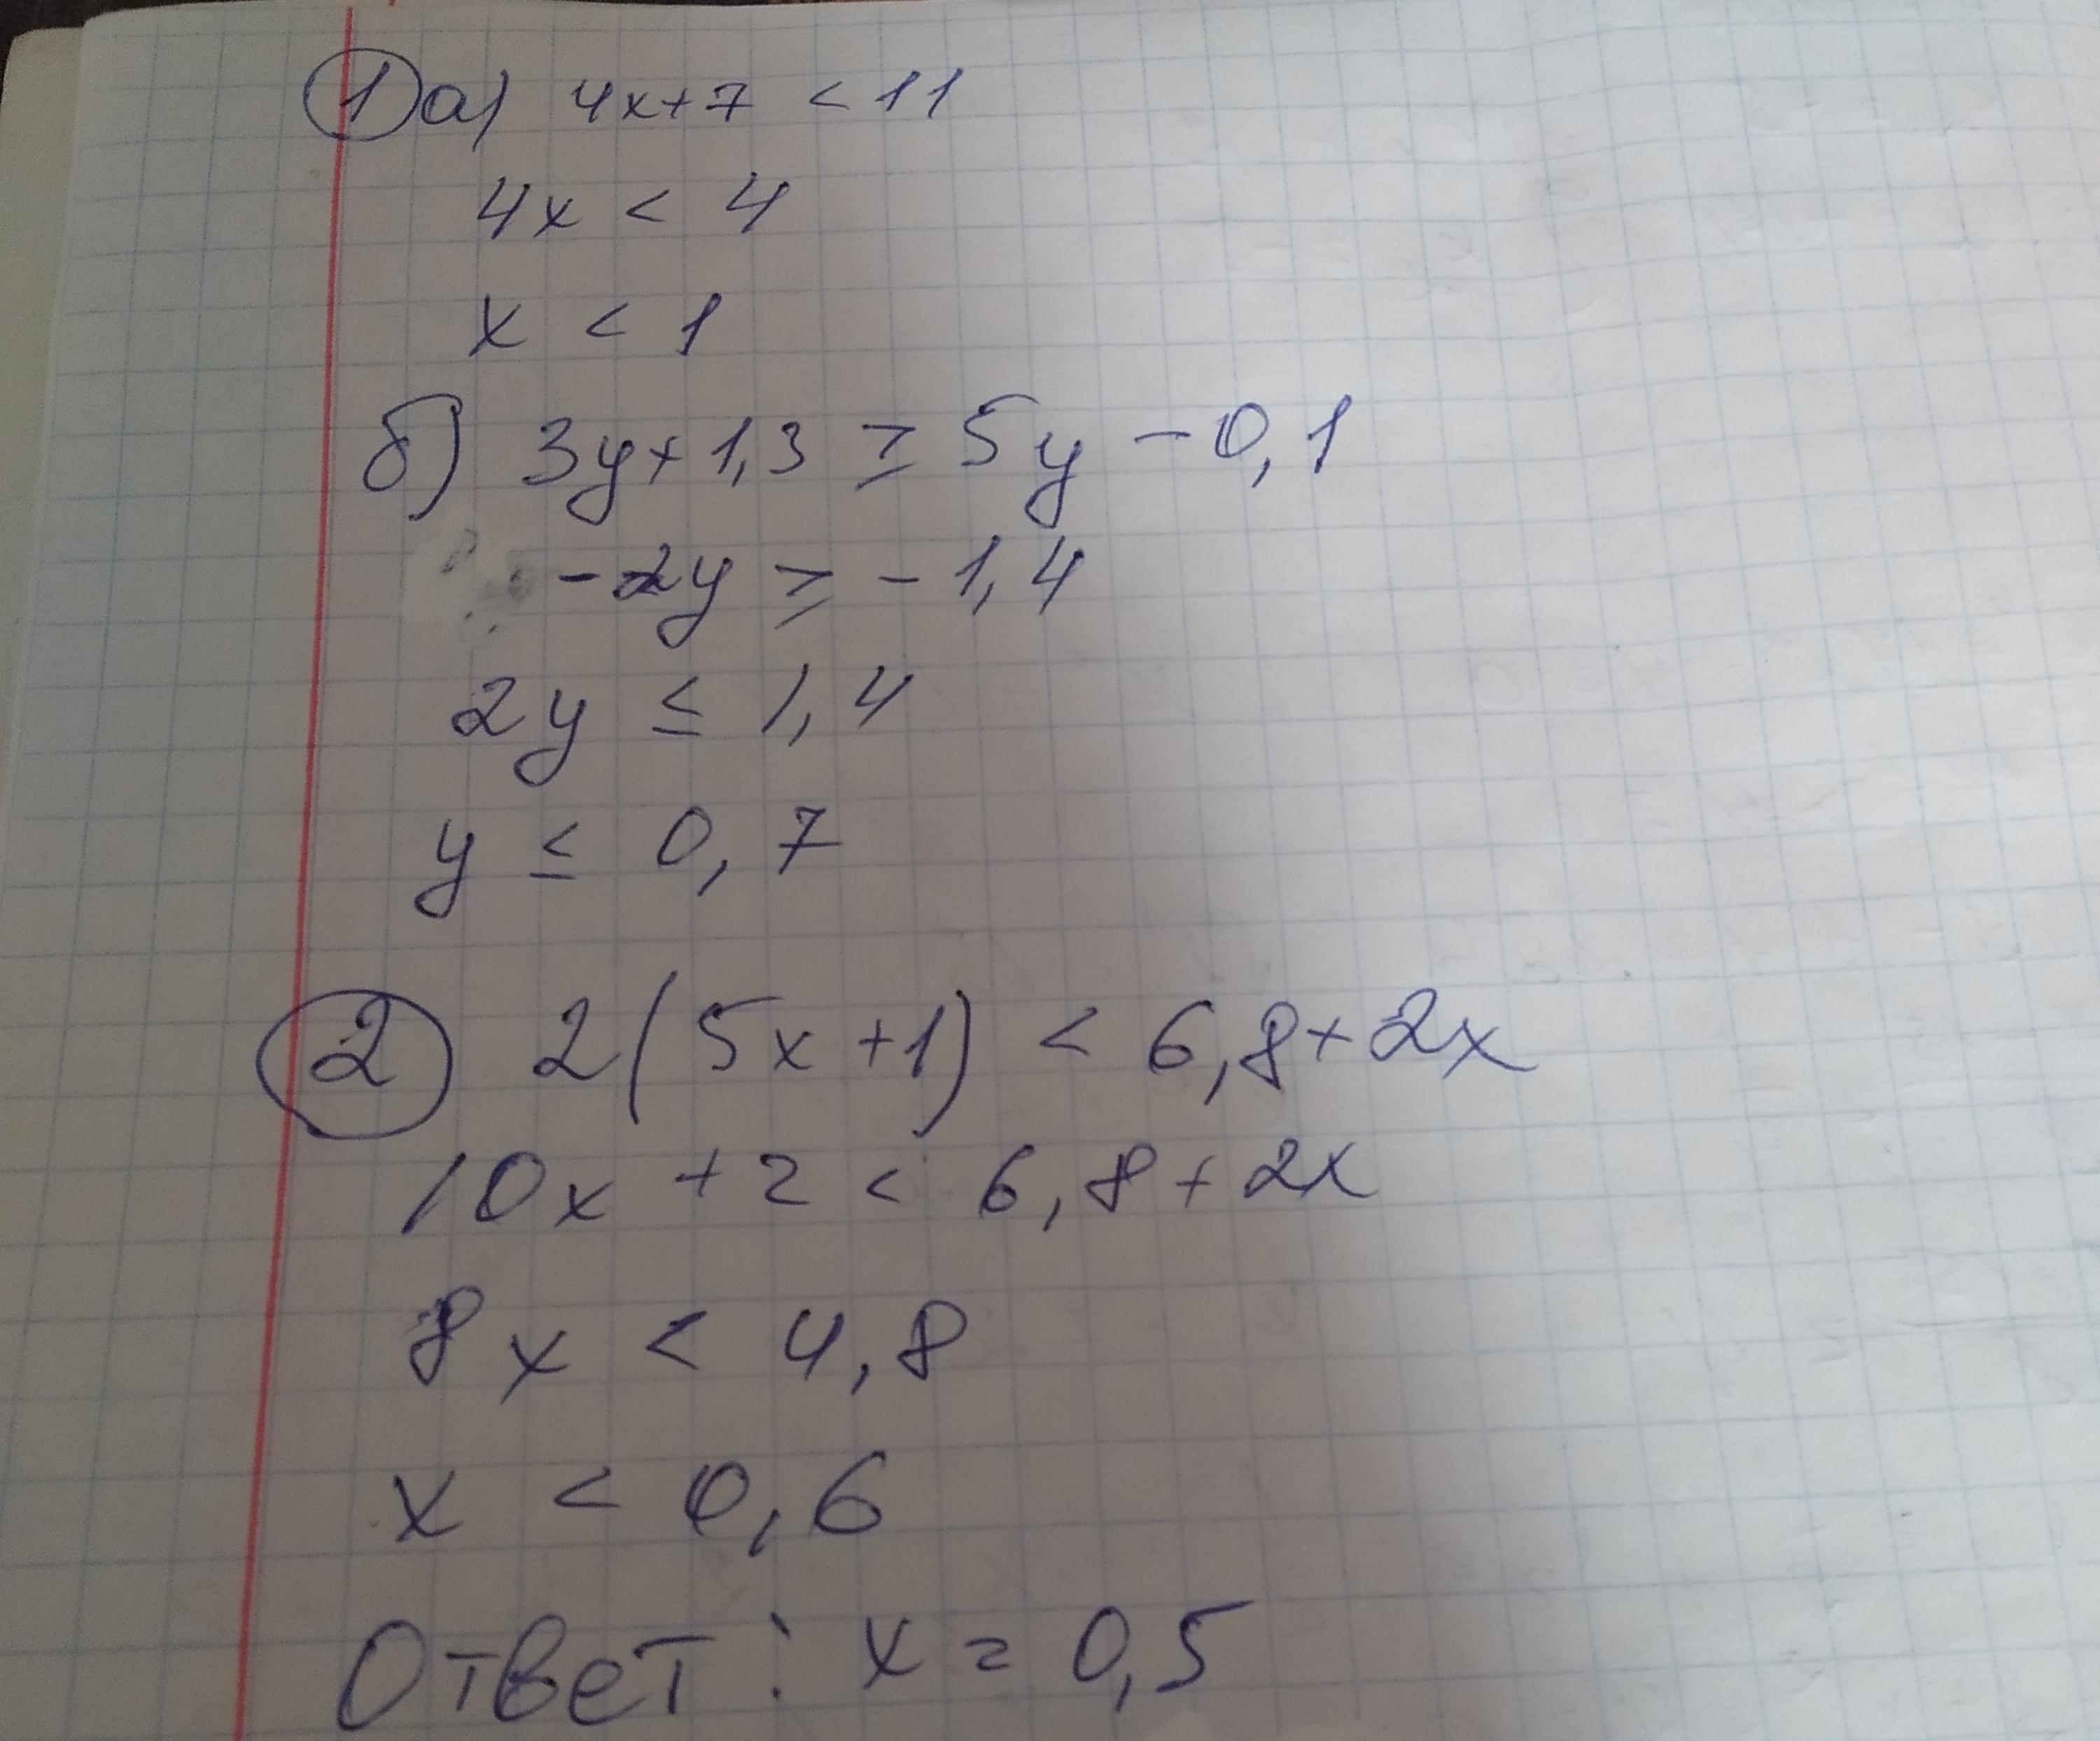 1 а) 4x+7 < 11
4x < 4
x < 1
б) 3y+1,3 ≥ 5y -0,1
-2y ≥ -1,4
2y ≤ 1,4
y ≤ 0,7
2 2(5x+1) < 6,8+2x
10x +2 < 6,8+2x
8x < 4,8
x < 0,6
Ответ: x = 0,5